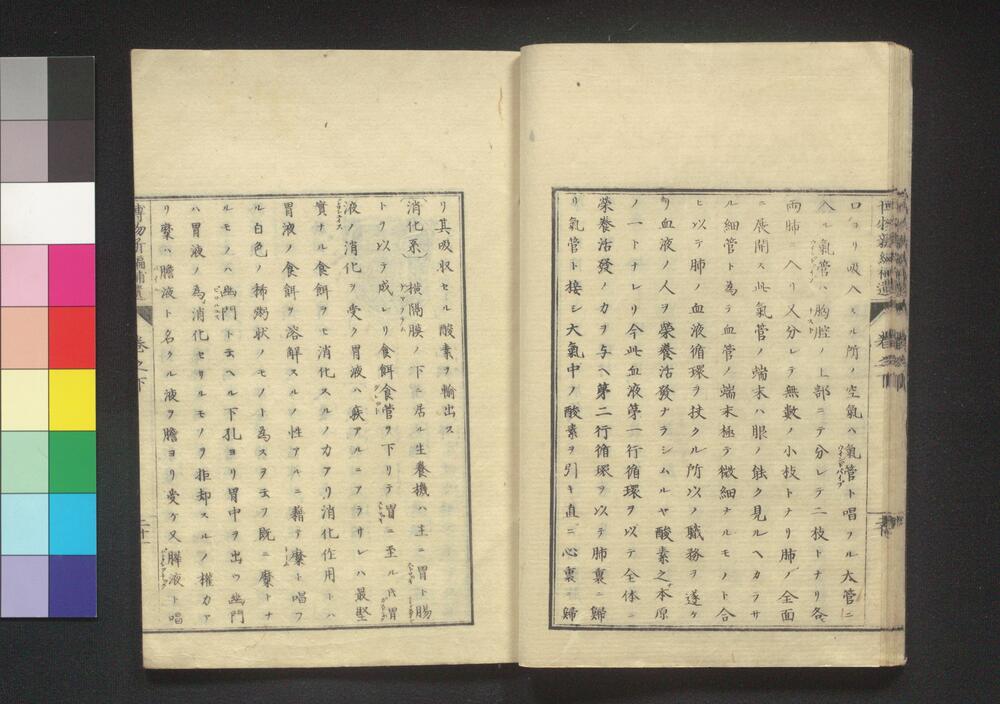 口ヨリ吸入スル所ノ空氣ハ氣管ト唱フル大管ニ
入ル氣管ハ胸腔ノ上部ニテ分レテ二枝トナリ各
両肺ニ入リ又分レテ無數ノ小枝トナリ肺ノ全面
ニ展開ス此氣管ノ端末ハ眼ノ能ク見ルヘカラサ
ル細管ト為ラ血管ノ端末極テ微細ナルモノト合
ヒ以テ肺ノ血液循環ヲ扶クル所以ノ職務ヲ遂ケ
血液ノ人ヲ榮養活發ナラシムルヤ酸素之本原
ノ一トナレリ今此血液第一行循環ヲ以テ全体ニ
榮養活發ノカヲ与ヘ第二行循環ヲ以テ肺裏ニ歸
リ氣管ト接シ大氣中ノ酸素ヲ引キ直ニ心裏ニ歸
リ其吸収セル酸素ヲ輸出ス
(消化系) 横隔膜ノ下ニ居ル生養機ハ主ニ胃ト腸
トヲ以テ成レリ食餌食管ヲ下リテ胃ニ至ル片胃
液ノ消化ヲ受ク胃液ハ酸アルニアラサレハ最堅
實ナル食餌ヲモ消化スルノ力アリ消化作用トハ
胃液ノ食餌ヲ溶解スルノ性アルニ藉テ糜ト唱フ
ル白色ノ稀粥状ノモノト為スヲ云フ既ニ糜トナ
ルモノハ幽門ト云ヘル下孔ヨリ胃中ヲ出ツ幽門
ハ胃液ノ為消化セサルモノヲ拒却スルノ權力ア
リ糜ハ膽液ト名クル液ヲ膽ヨリ受ケ又膵液ト唱
博物新編補遺 卷之下